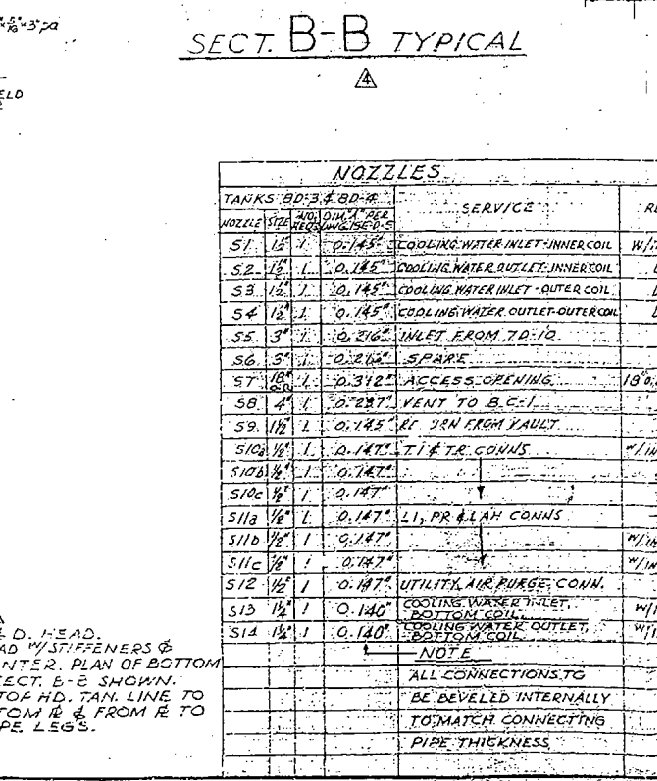 SECT. B-B TYPICAL
4
ELD
NOZZLES
TANKS 8D-3 & 8D-4
SERVICE
NOZZLE SIZE NO. REQ. DIM. "A" PER
S1 1½" 1 0.145" COOLING WATER INLET-INNER COIL
S2 1½" 1 0.145" COOLING WATER OUTLET-INNER COIL
S3 1½" 1 0.145" COOLING WATER INLET-OUTER COIL
S4 1½" 1 0.145" COOLING WATER OUTLET-OUTER COIL
S5 3" 1 0.216" INLET FROM 7D-10
S6 3" 1 0.216" SPARE
S7 18" 1 0.312" ACCESS OPENING
S8 4" 1 0.237" VENT TO 8C-1
S9 1½" 1 0.145" FROM VAULT
S10a ½" 1 0.147" TI & TR CONNS
S10b ½" 1 0.147"
S10c ½" 1 0.147"
S11a ½" 1 0.147" LI, PR & LAH CONNS
S11b ½" 1 0.147"
S11c ½" 1 0.147"
S12 ½" 1 0.147" UTILITY AIR PURGE CONN.
S13 1¼" 1 0.140" COOLING WATER INLET, BOTTOM COIL
S14 1¼" 1 0.140" COOLING WATER OUTLET, BOTTOM COIL
NOTE
ALL CONNECTIONS TO
BE BEVELED INTERNALLY
TO MATCH CONNECTING
PIPE THICKNESS
D. HEAD.
AD W/STIFFENERS &
NTER. PLAN OF BOTTOM
ECT. B-B SHOWN.
TOP HD. TAN. LINE TO
TOM ℄ & FROM ℄ TO
PE LEGS.